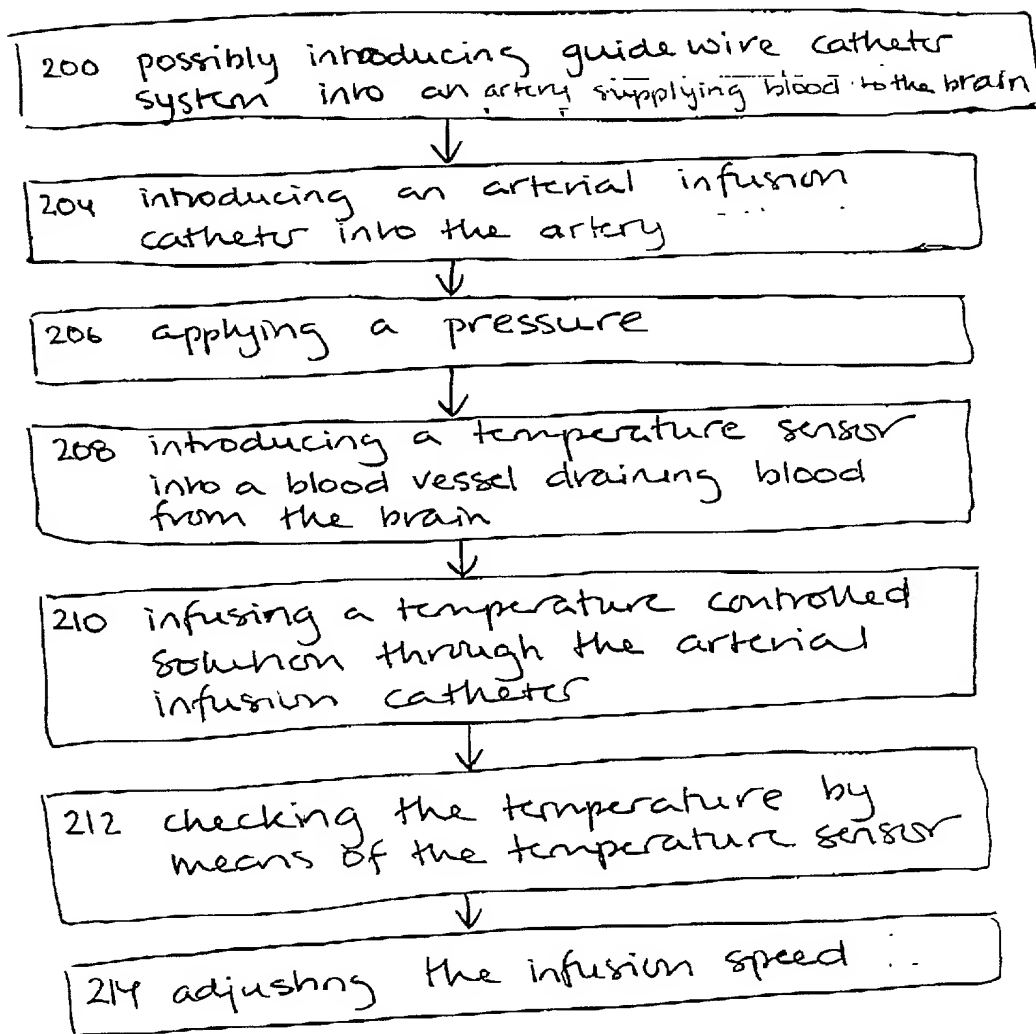 200 possibly introducing guidewire catheter
system into an artery supplying blood to the brain
204 introducing an arterial infusion
catheter into the artery
206 applying a pressure
208 introducing a temperature sensor
into a blood vessel draining blood
from the brain
210 infusing a temperature controlled
solution through the arterial
infusion catheter
212 checking the temperature by
means of the temperature sensor
214 adjusting the infusion speed